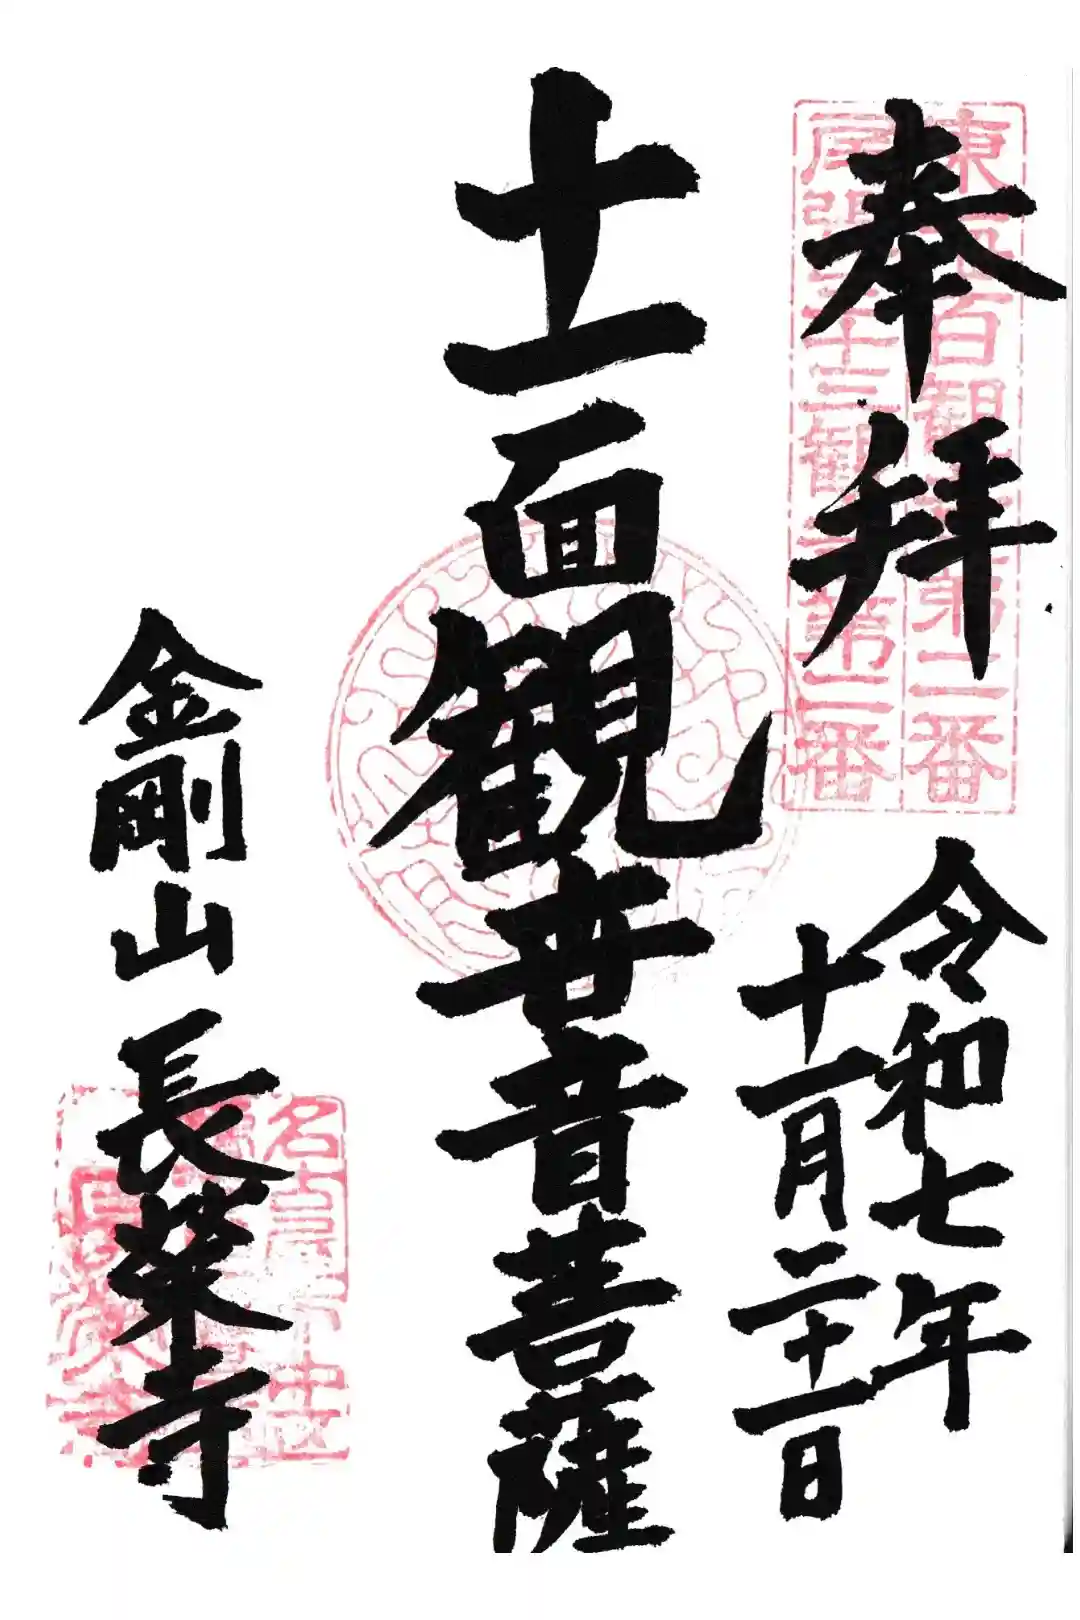 奉拝
東海百観音第二番
尾張三十三観音第二番
令和七年
十一月二十一日
十一面観世音菩薩
金剛山 長榮寺